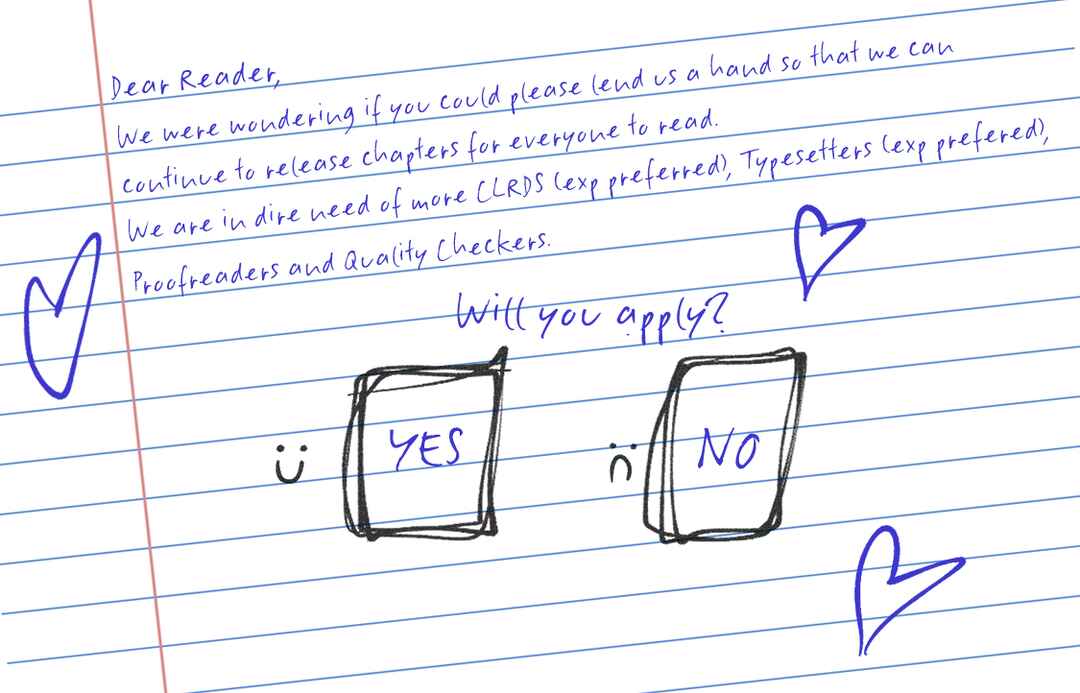 Dear Reader,
We were wondering if you could please lend us a hand so that we can
continue to release chapters for everyone to read.
We are in dire need of more CLRDS (exp preferred), Typesetters (exp prefered),
Proofreaders and Quality Checkers.
Will you apply?
YES
NO